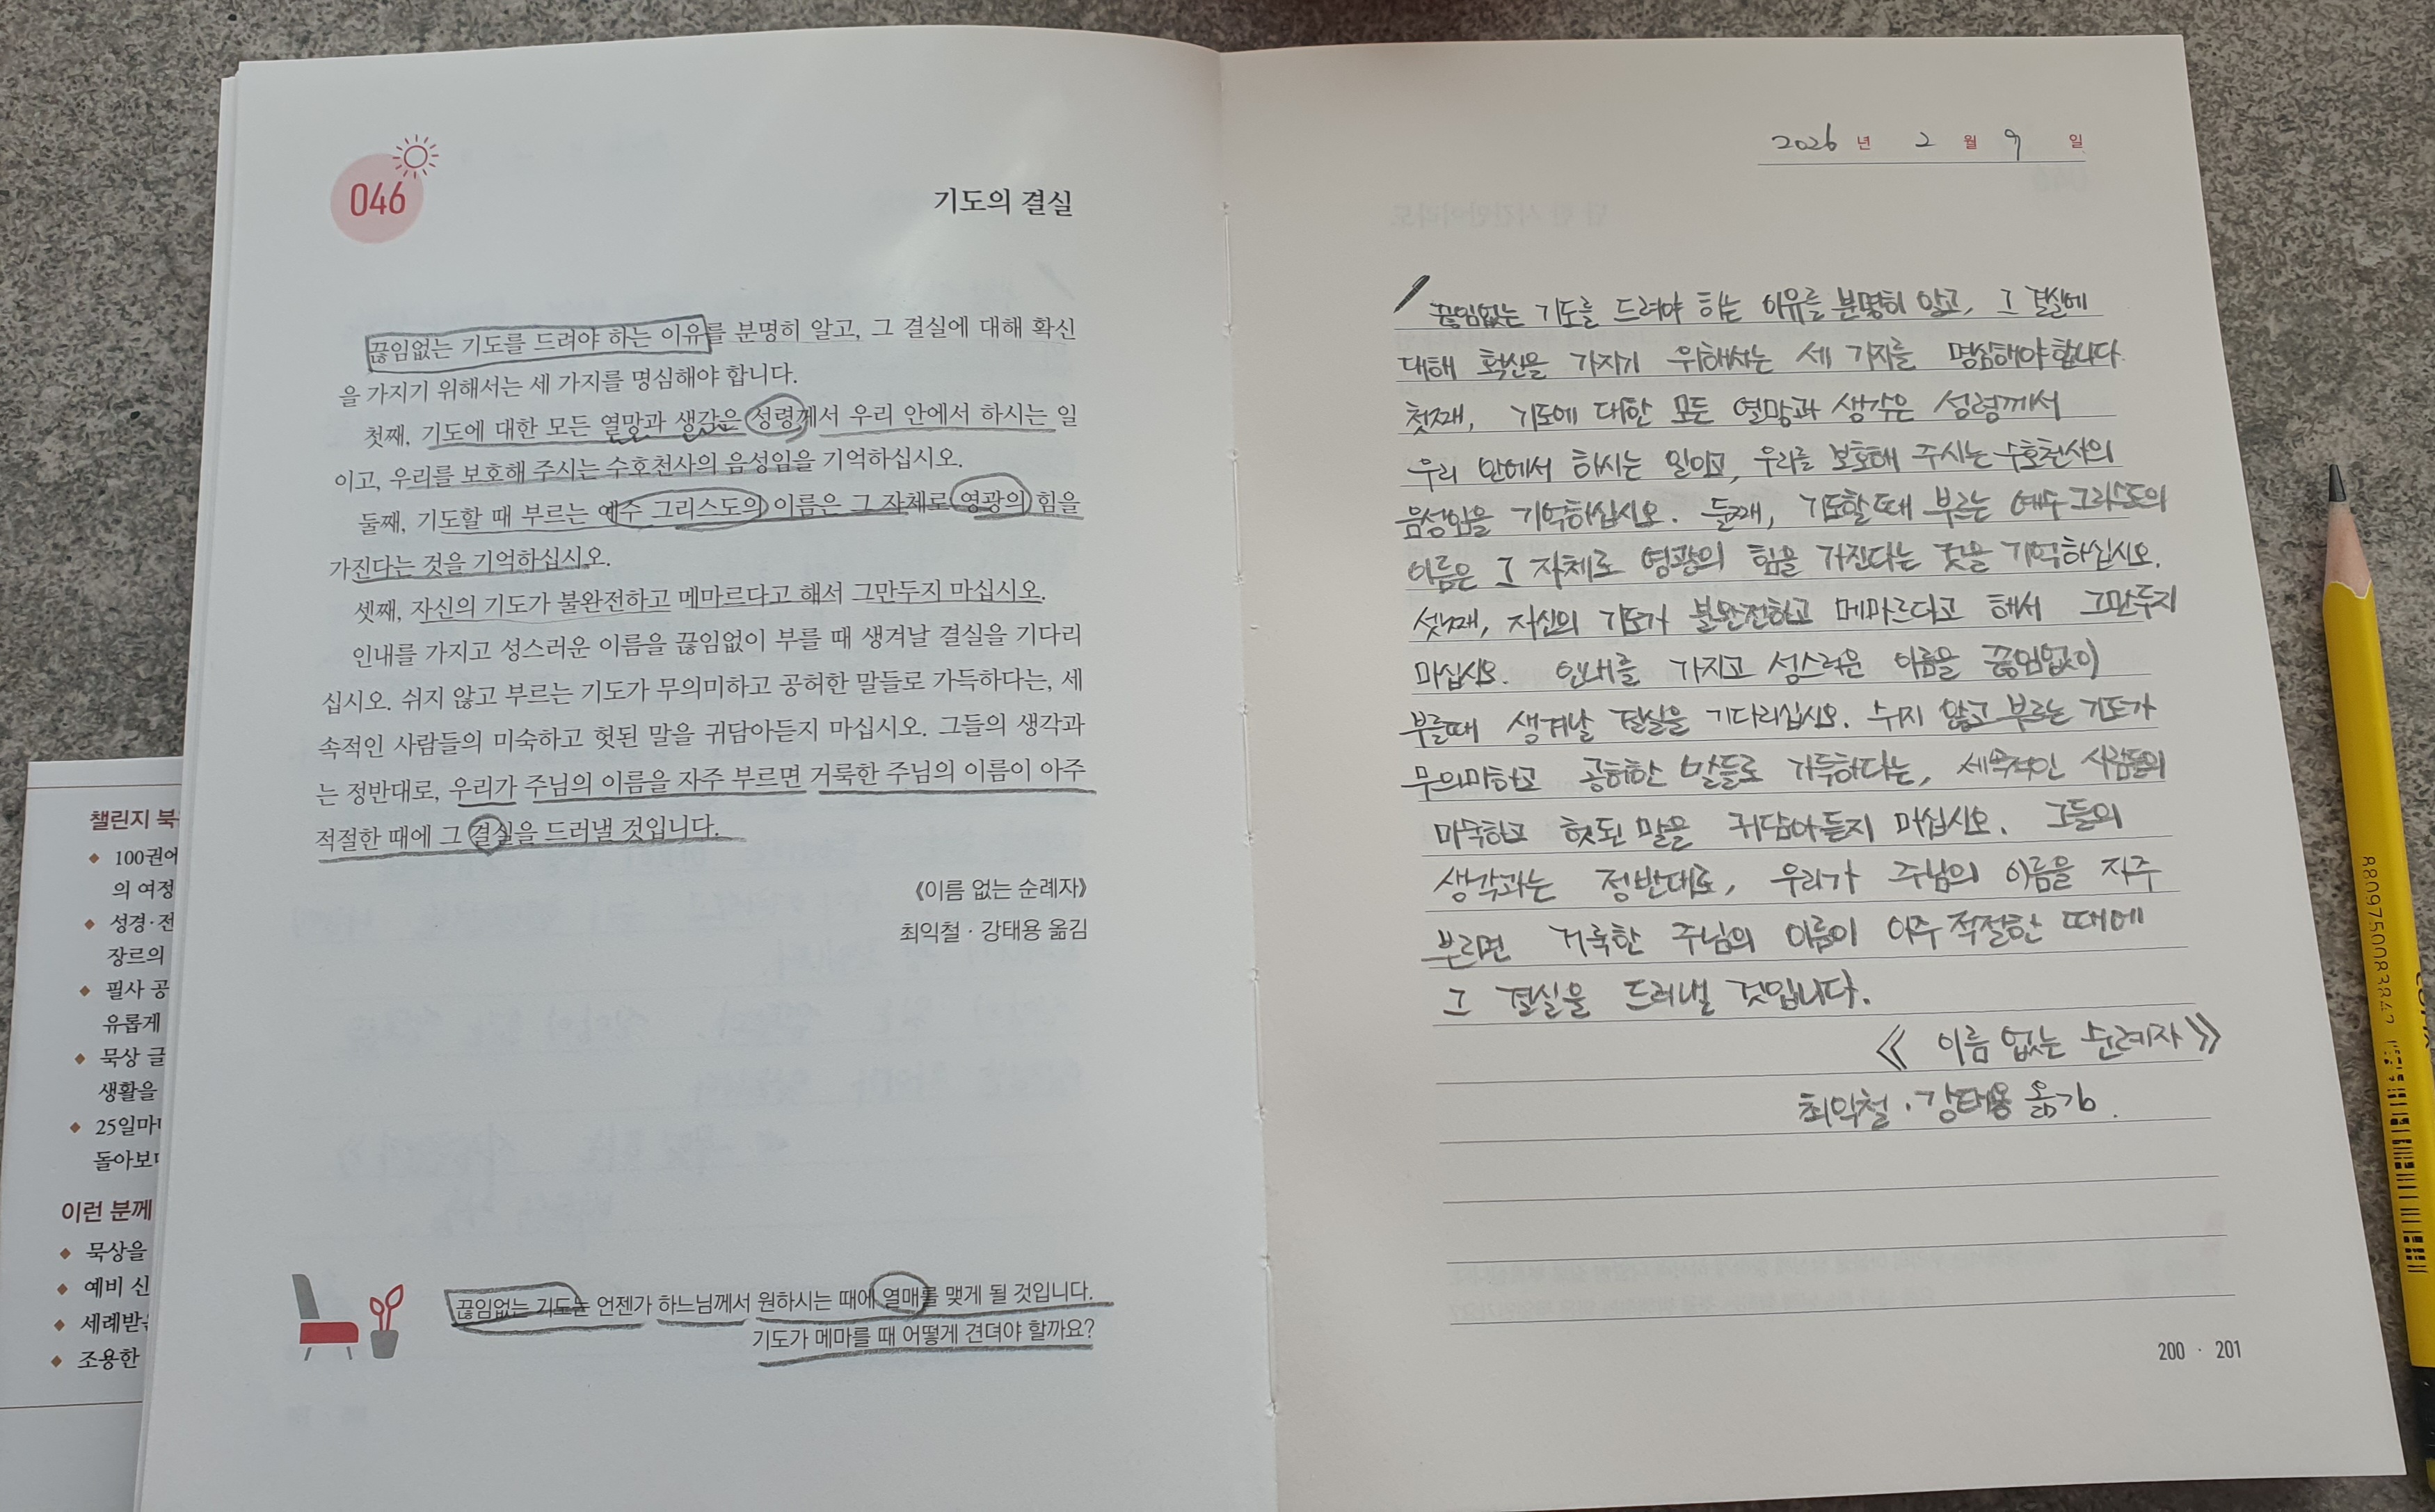 046
기도의 결실
끊임없는 기도를 드려야 하는 이유를 분명히 알고, 그 결실에 대해 확신
을 가지기 위해서는 세 가지를 명심해야 합니다.
첫째, 기도에 대한 모든 열망과 생각은 성령께서 우리 안에서 하시는 일
이고, 우리를 보호해 주시는 수호천사의 음성임을 기억하십시오.
둘째, 기도할 때 부르는 예수 그리스도의 이름은 그 자체로 영광의 힘을
가진다는 것을 기억하십시오.
셋째, 자신의 기도가 불완전하고 메마르다고 해서 그만두지 마십시오.
인내를 가지고 성스러운 이름을 끊임없이 부를 때 생겨날 결실을 기다리
십시오. 쉬지 않고 부르는 기도가 무의미하고 공허한 말들로 가득하다는, 세
속적인 사람들의 미숙하고 헛된 말을 귀담아듣지 마십시오. 그들의 생각과
는 정반대로, 우리가 주님의 이름을 자주 부르면 거룩한 주님의 이름이 아주
적절한 때에 그 결실을 드러낼 것입니다.
《이름 없는 순례자》
최익철 · 강태용 옮김
끊임없는 기도는 언젠가 하느님께서 원하시는 때에 열매를 맺게 될 것입니다.
기도가 메마를 때 어떻게 견뎌야 할까요?
챌린지 북
100권에
의 여정
성경·전
장르의
필사 공
유롭게
묵상 글
생활을
25일마다
돌아보
이런 분께
묵상을
예비 신
세례받
조용한
2026 년 2 월 9 일
끊임없는 기도를 드려야 하는 이유를 분명히 알고, 그 결실에
대해 확신을 가지기 위해서는 세 가지를 명심해야 합니다.
첫째, 기도에 대한 모든 열망과 생각은 성령께서
우리 안에서 하시는 일이고, 우리를 보호해 주시는 수호천사의
음성임을 기억하십시오. 둘째, 기도할때 부르는 예수그리스도의
이름은 그 자체로 영광의 힘을 가진다는 것을 기억하십시오.
셋째, 자신의 기도가 불완전하고 메마르다고 해서 그만두지
마십시오. 인내를 가지고 성스러운 이름을 끊임없이
부를때 생겨날 결실을 기다리십시오. 쉬지 않고 부르는 기도가
무의미하고 공허한 말들로 가득하다는, 세속적인 사람들의
미숙하고 헛된 말을 귀담아듣지 마십시오. 그들의
생각과는 정반대로, 우리가 주님의 이름을 자주
부르면 거룩한 주님의 이름이 아주 적절한 때에
그 결실을 드러낼 것입니다.
《 이름 없는 순례자 》
최익철 · 강태용 옮김.
200 · 201
8809750083342